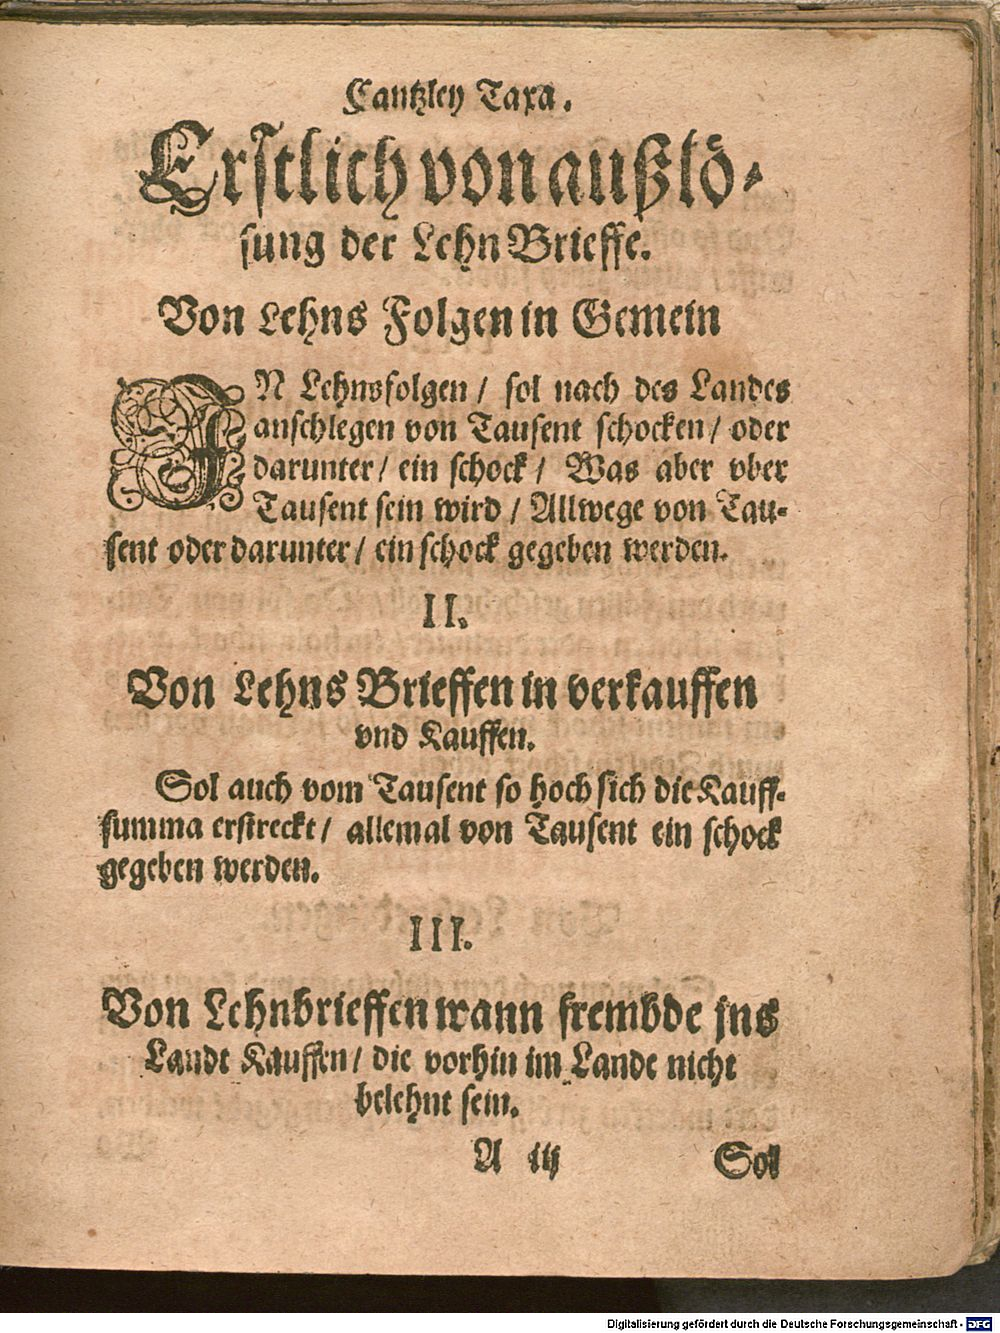 Cantzley Taxa.
Erstlich von außlö-
sung der Lehn Brieffe.
Von Lehns Folgen in Gemein
IN Lehnsfolgen / sol nach des Landes
anschlegen von Tausent schocken / oder
darunter / ein schock / Was aber vber
Tausent sein wird / Allwege von Tau-
sent oder darunter / ein schock gegeben werden.
II.
Von Lehns Brieffen in verkauffen
vnd Kauffen.
Sol auch vom Tausent so hoch sich die Kauff-
summa erstreckt / allemal von Tausent ein schock
gegeben werden.
III.
Von Lehnbrieffen wann frembde jns
Landt Kauffen / die vorhin im Lande nicht
belehnt sein.
A iij Sol
Digitalisierung gefördert durch die Deutsche Forschungsgemeinschaft - DFG